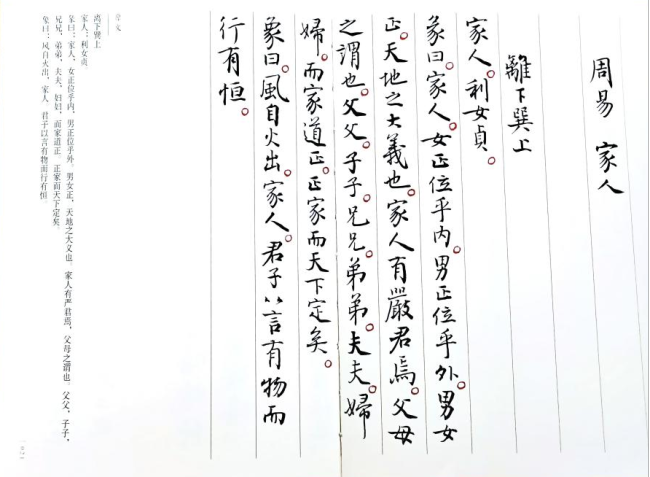 周易 家人
離下巽上
家人。利女貞。
彖曰。家人。女正位乎內。男正位乎外。男女
正。天地之大義也。家人有嚴君焉。父母
之謂也。父父。子子。兄兄。弟弟。夫夫。婦
婦。而家道正。正家而天下定矣。
象曰。風自火出。家人。君子以言有物而
行有恒。
释文
离下巽上
家人：利女贞。
彖曰：家人，女正位乎内，男正位乎外。男女正，天地之大义也。家人有严君焉，父母之谓也。父父，子子，
兄兄，弟弟，夫夫，妇妇，而家道正。正家而天下定矣。
象曰：风自火出，家人。君子以言有物而行有恒。